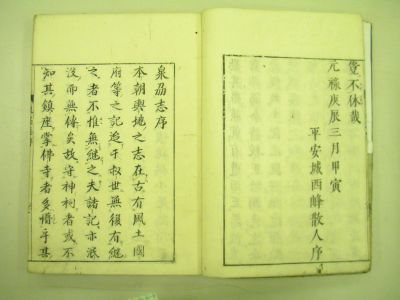 豈不休哉
元祿庚辰三月甲寅
平安城西峰散人序
泉州志序
本朝輿地之志在古有風土國
府等之記迨于叔世無復有繼
之者不惟無繼之夫諸記亦泯
沒而無傳矣故守神祠者或不
知其鎮座掌佛寺者多惛乎其